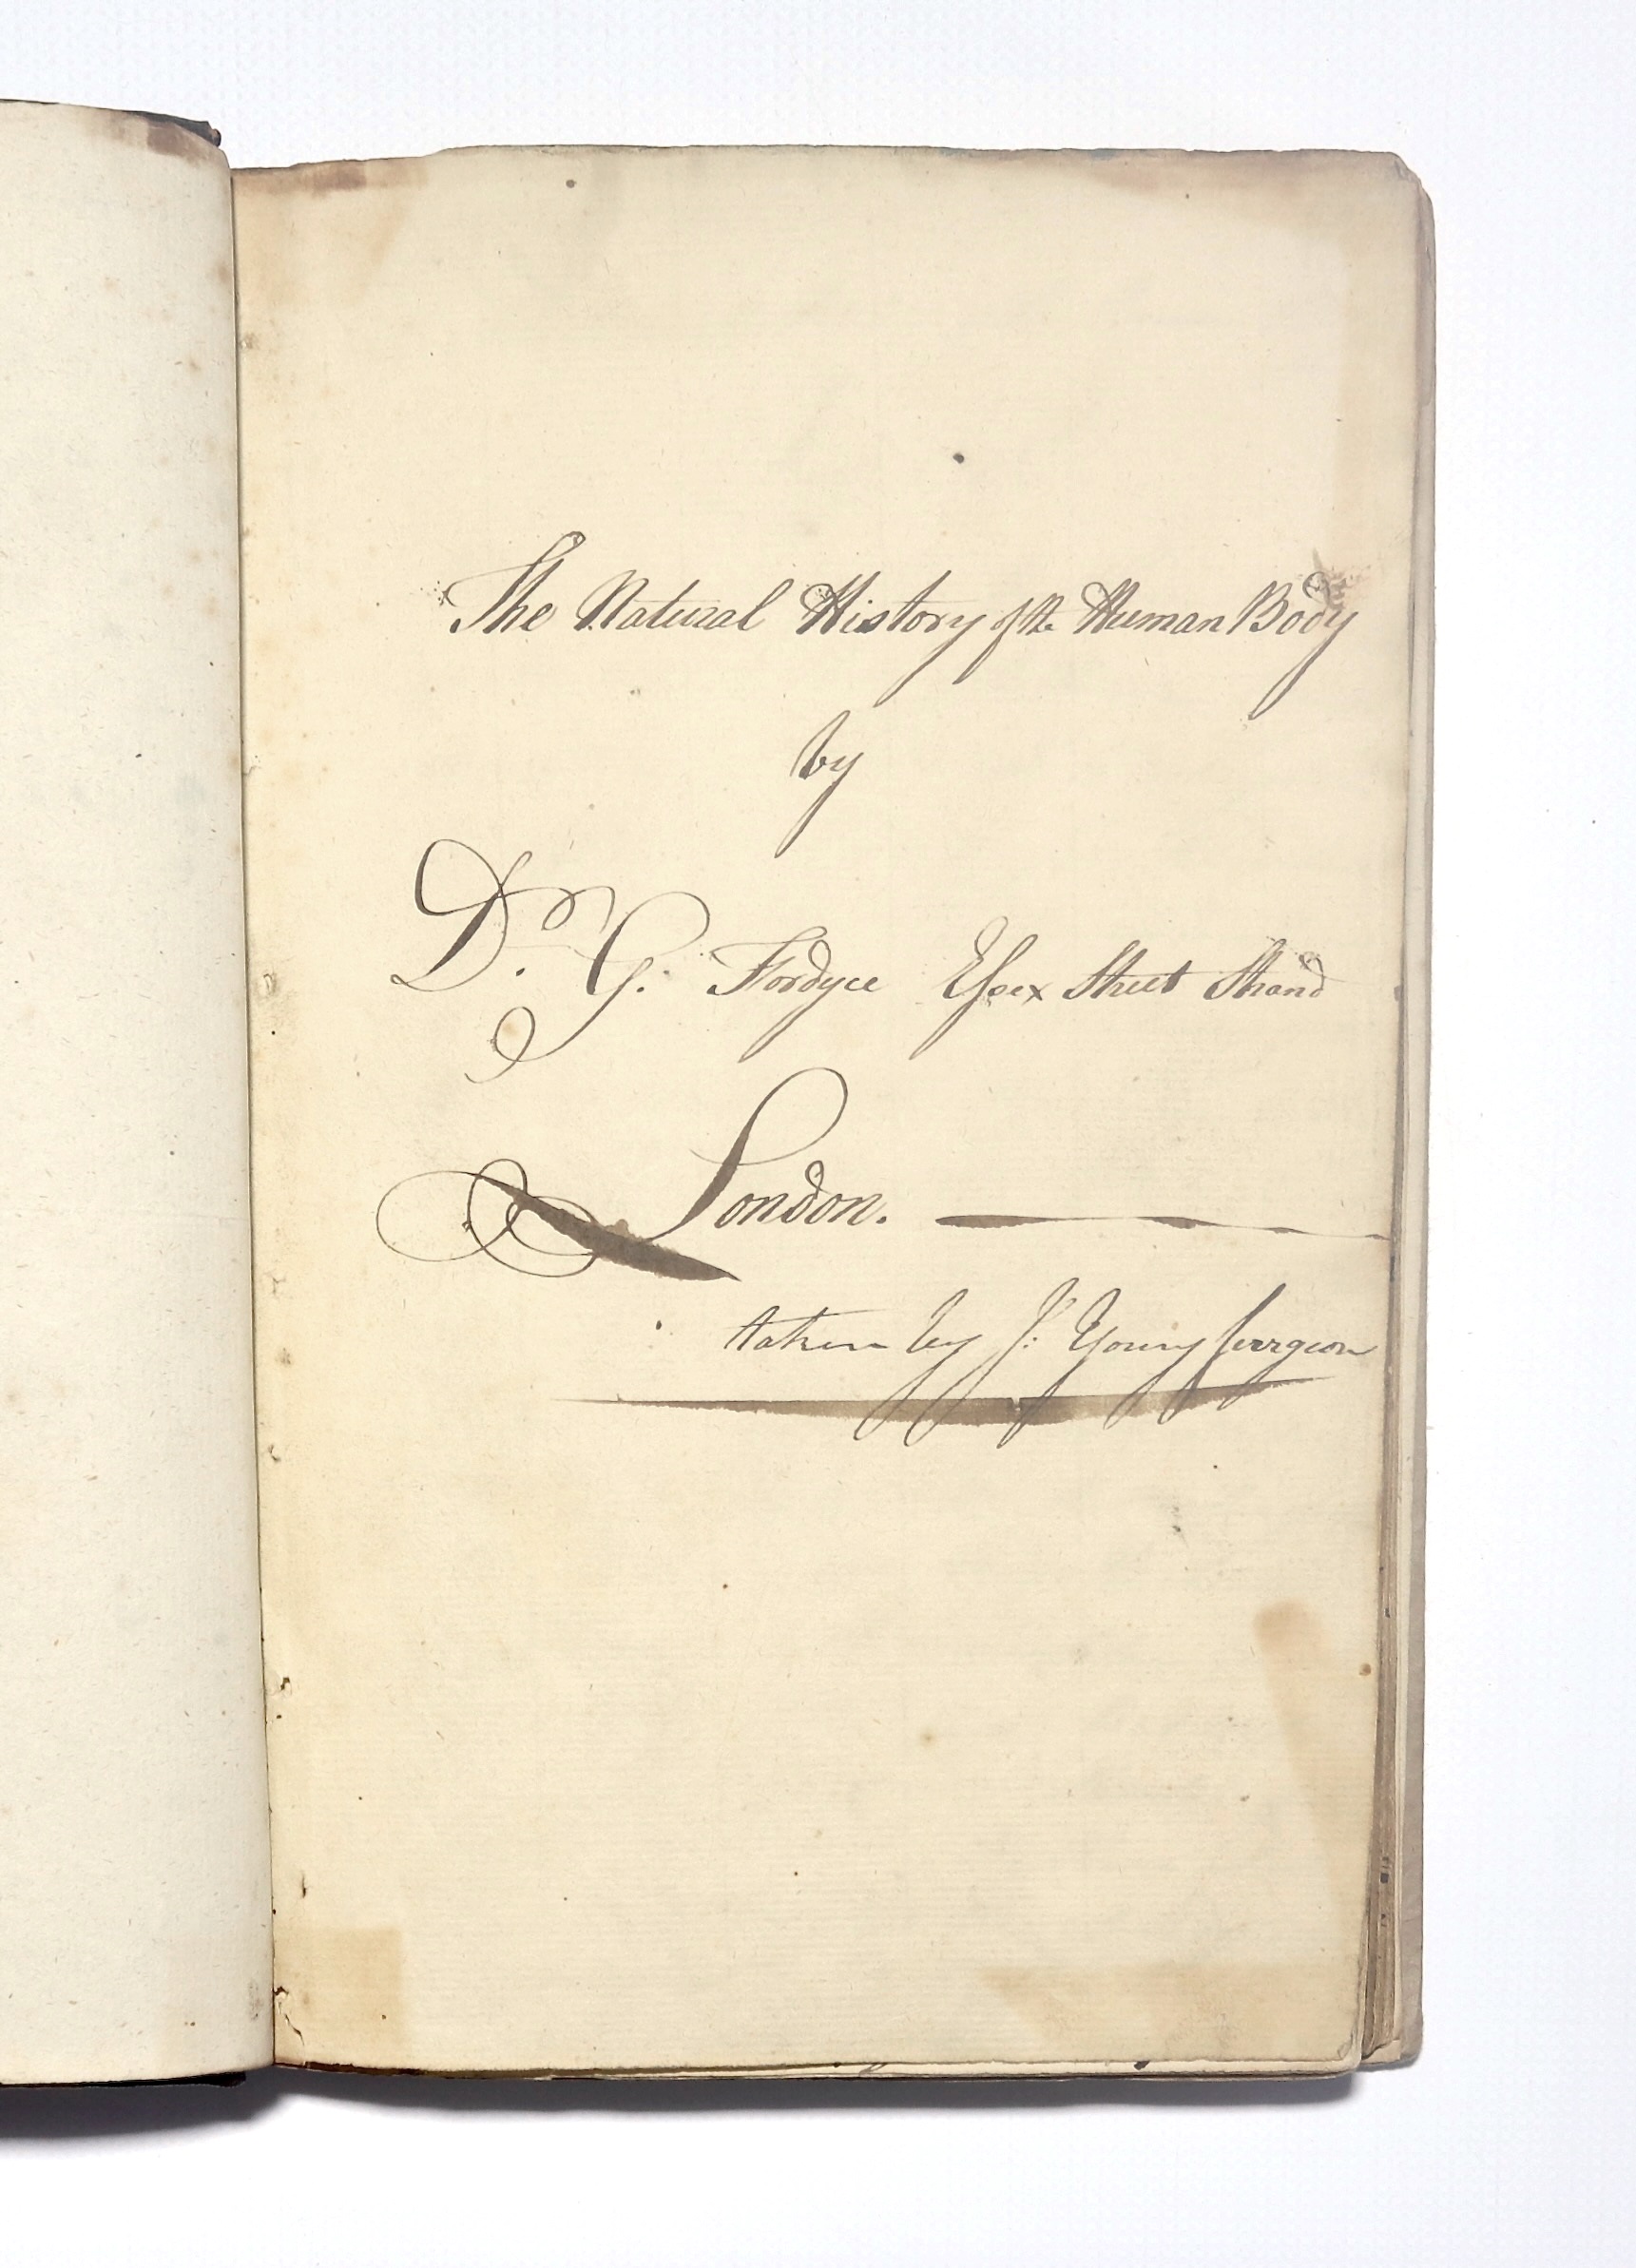 The Natural History of the Human Body
by
Dr. G: Fordyce Eſsex Street Strand
London.
taken by J: Young ſurgeon